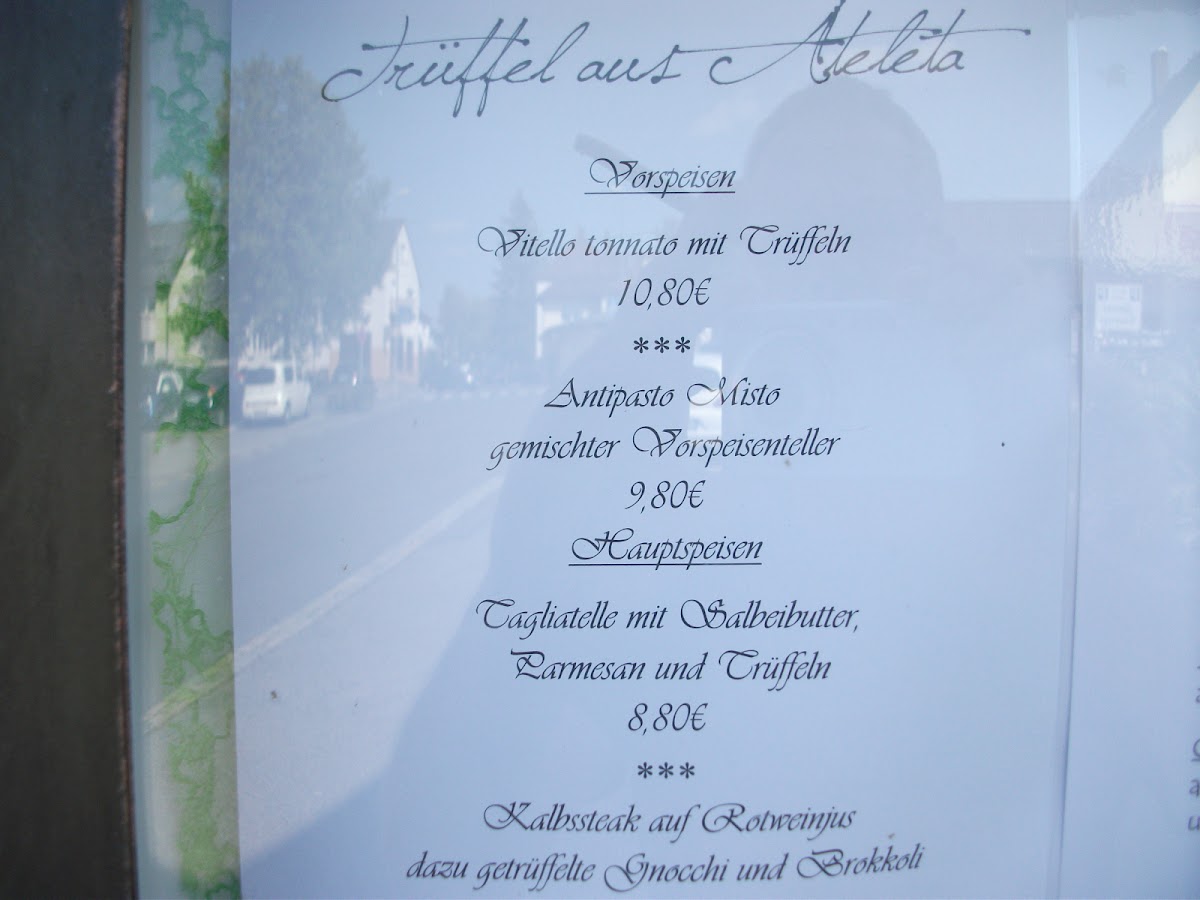 Trüffel aus Ateleta
Vorspeisen
Vitello tonnato mit Trüffeln
10,80€
***
Antipasto Misto
gemischter Vorspeisenteller
9,80€
Hauptspeisen
Tagliatelle mit Salbeibutter,
Parmesan und Trüffeln
8,80€
***
Kalbssteak auf Rotweinjus
dazu getrüffelte Gnocchi und Brokkoli